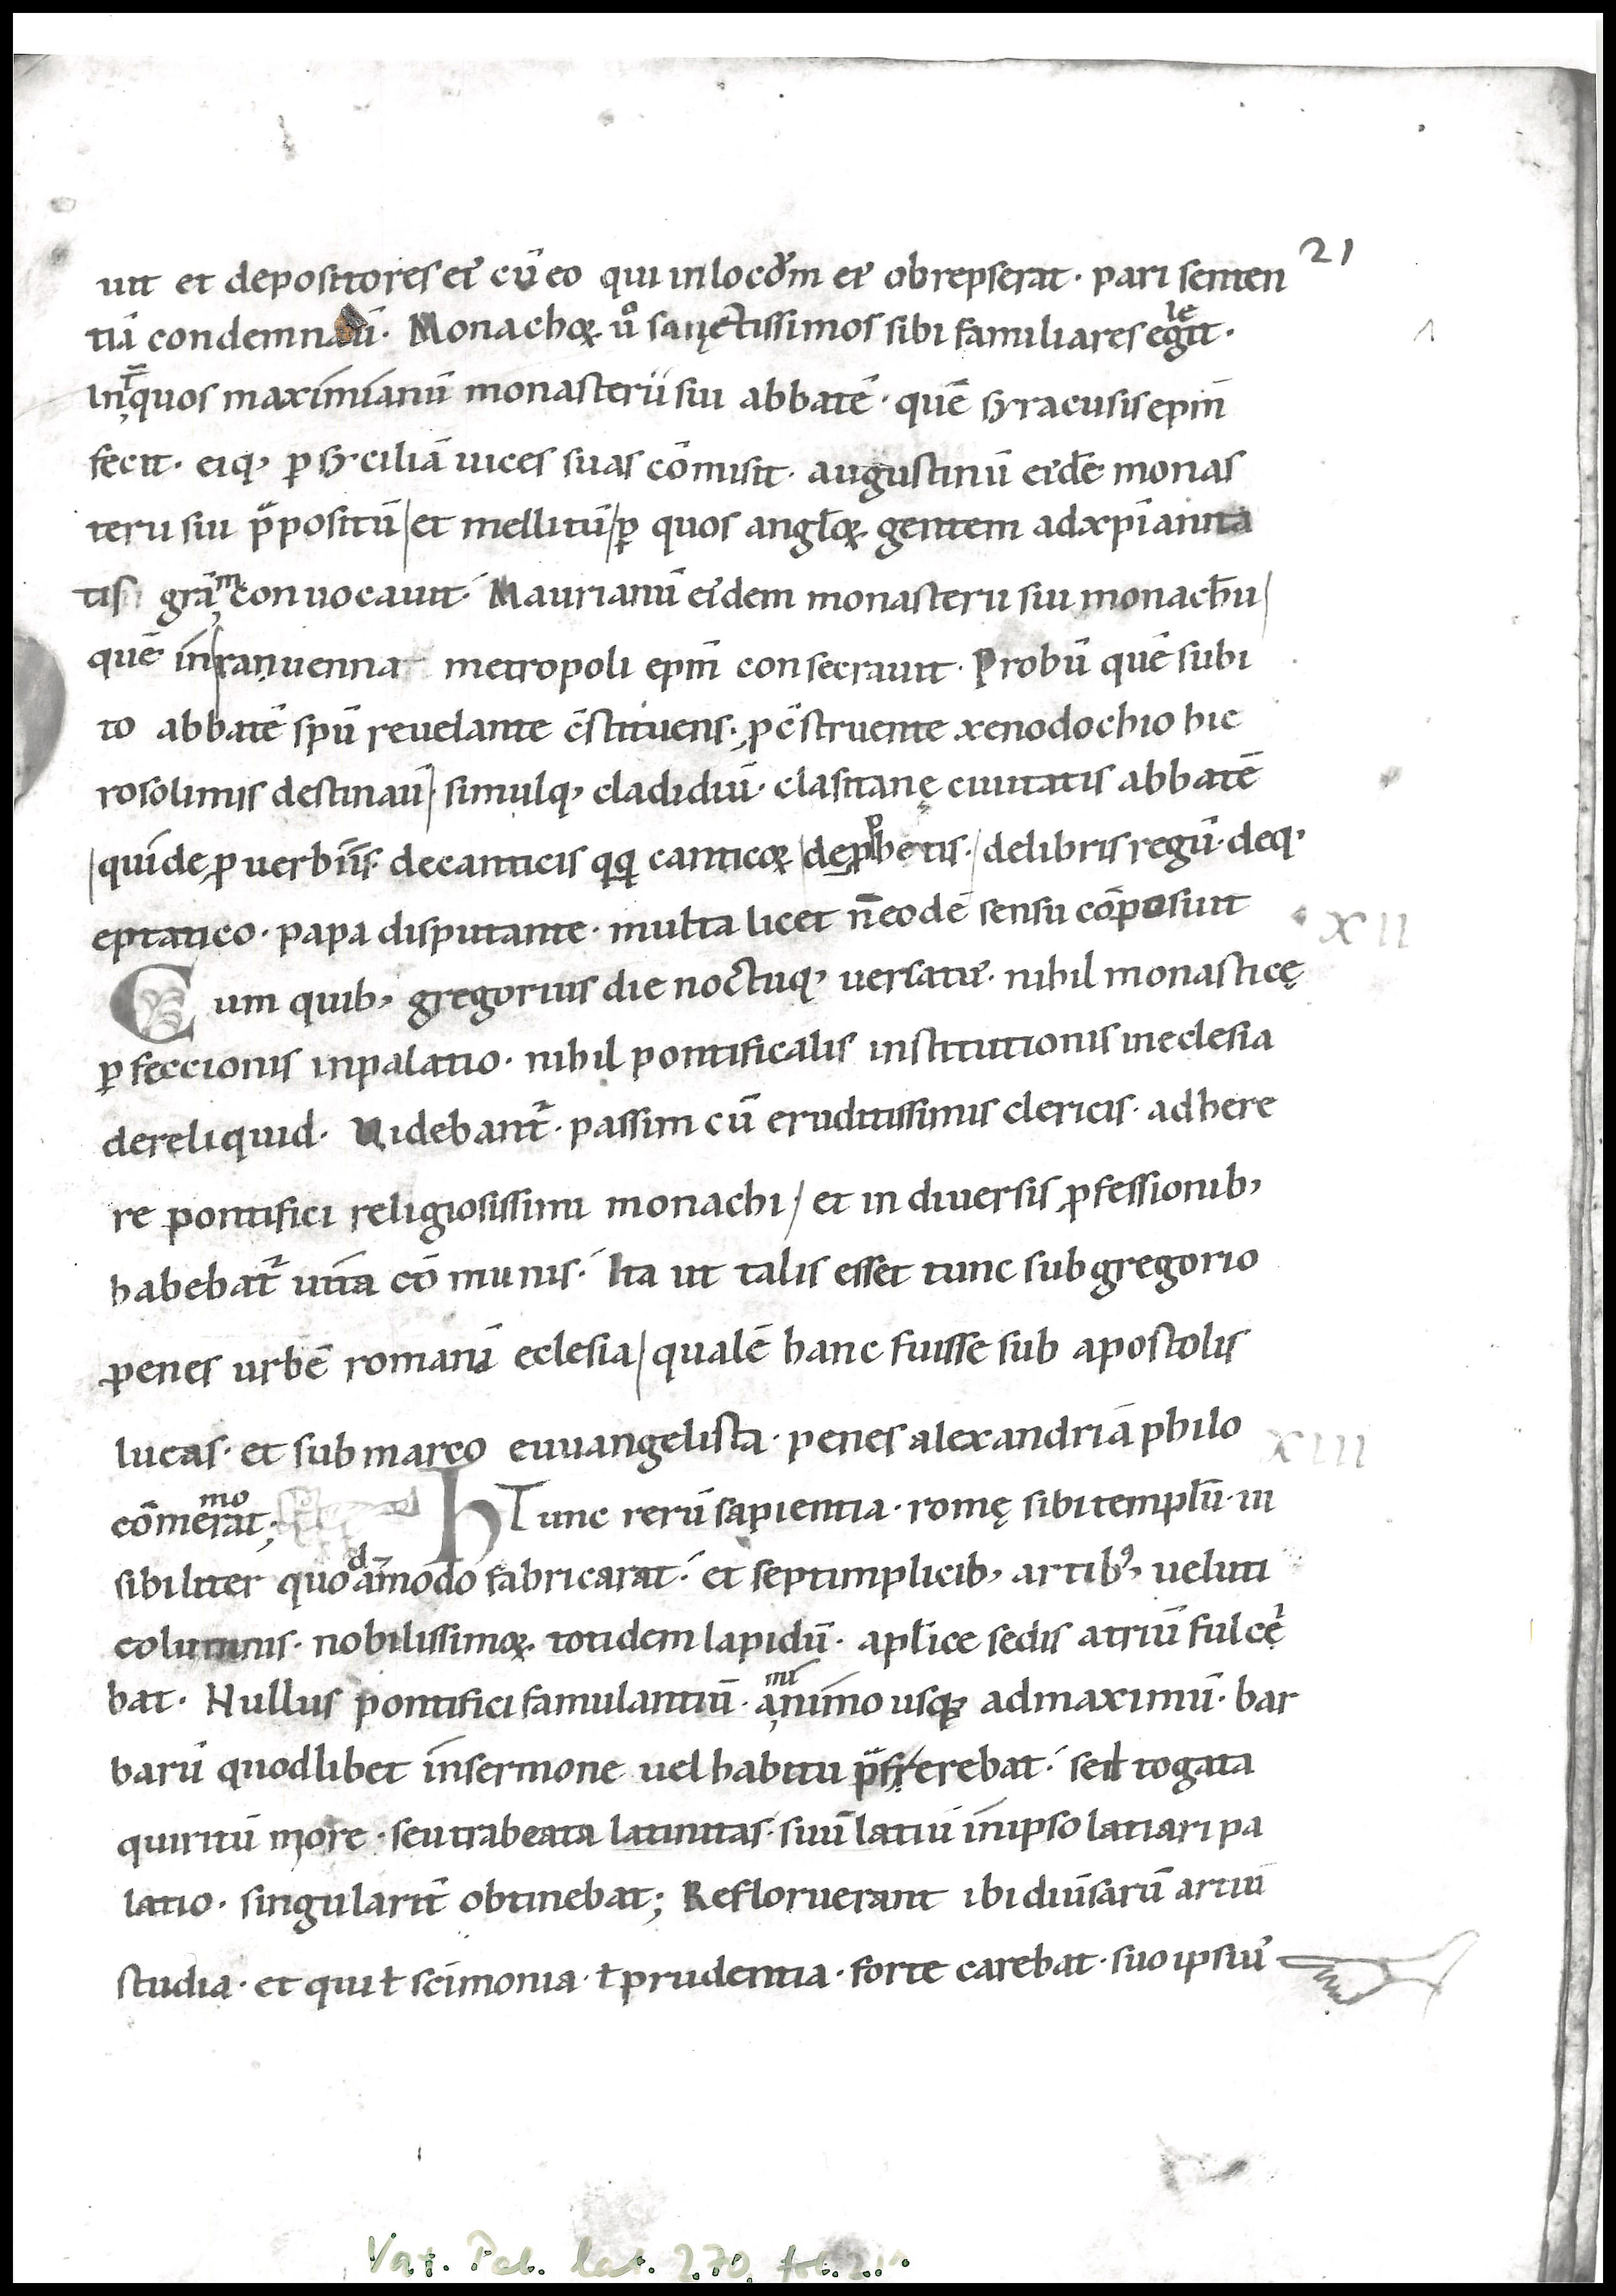 21
uit et depositores eı᷑ cū eo qui inlocū̄m eı᷑ obrepserat · pari senten
tiā condemnaū · Monachoꝝ uͦ sanctissimos sibi familiares elegit ·
Int̄ quos maximianū monasterii sui abbatē · quē syracusis ep̄m
fecit · eiq; ꝑ syciliā uices suas cōmisit · augustinū eı᷑dē monas
terii sui p̄positū / et mellitū / ꝑ quos angl̄oꝝ gentem adxp̄ianita
tis gr̄am conuocauit · Maurianū eı᷑dem monasterii sui monachū /
quē in rauenna metropoli ep̄m consecrauit · Probū quē subi
to abbatē sp̄u reuelante c̄stituens · ꝓ c̄struente xenodochio hie
rosolimis destinauī / simulq; cladidiū · clasitanę ciuitatis abbatē
/ qui de ꝓuerbiis · decanticis qq̄ canticoꝝ / deꝓphetis · / delibris regū · deq;
eptatico · papa disputante · multa licet n̄ eodē sensu cōposuit
XII
Cum quib; gregorius die noctuq; uersatuı᷑ · nihil monasticę
ꝑfeccionis inpalatio · nihil pontificalis institutionis ineclesia
dereliquid · Uidebant᷑ · passim cū eruditissimis clericis · adhere
re pontifici religiosissimi monachi / et in diuersis ꝓfessionib;
habebat᷑ uita cōmunis · Ita ut talis esset tunc sub gregorio
penes urbē romanā eclesia / qualē hanc fuisse sub apostolis
lucas · et sub marco euuangelista · penes alexandriā philo
XIII
cōmemorat; Tunc rerū sapientia · romę sibi templū · ui
sibiliter quodamodo fabricarat · et septimplicib; artib; ueluti
columnis · nobilissimoꝝ totidem lapidū · apl̄ice sedis atriū fulcę
bat · Nullus pontifici famulantiū · animo usq; admaximū · bar
barū quodlibet insermone uel habitu p̄ferebat · sed togata
quiritū more · seu trabeata latinitas · suū latiū inipso latiari pa
latio · singularit̄ obtinebat; Refloruerant ibi diu᷑sarū artiū
studia · et qui ł sc̄imonia · ł prudentia · forte carebat · suo ipsiuꝰ
Vat. Pal. lat. 270, fol. 21r